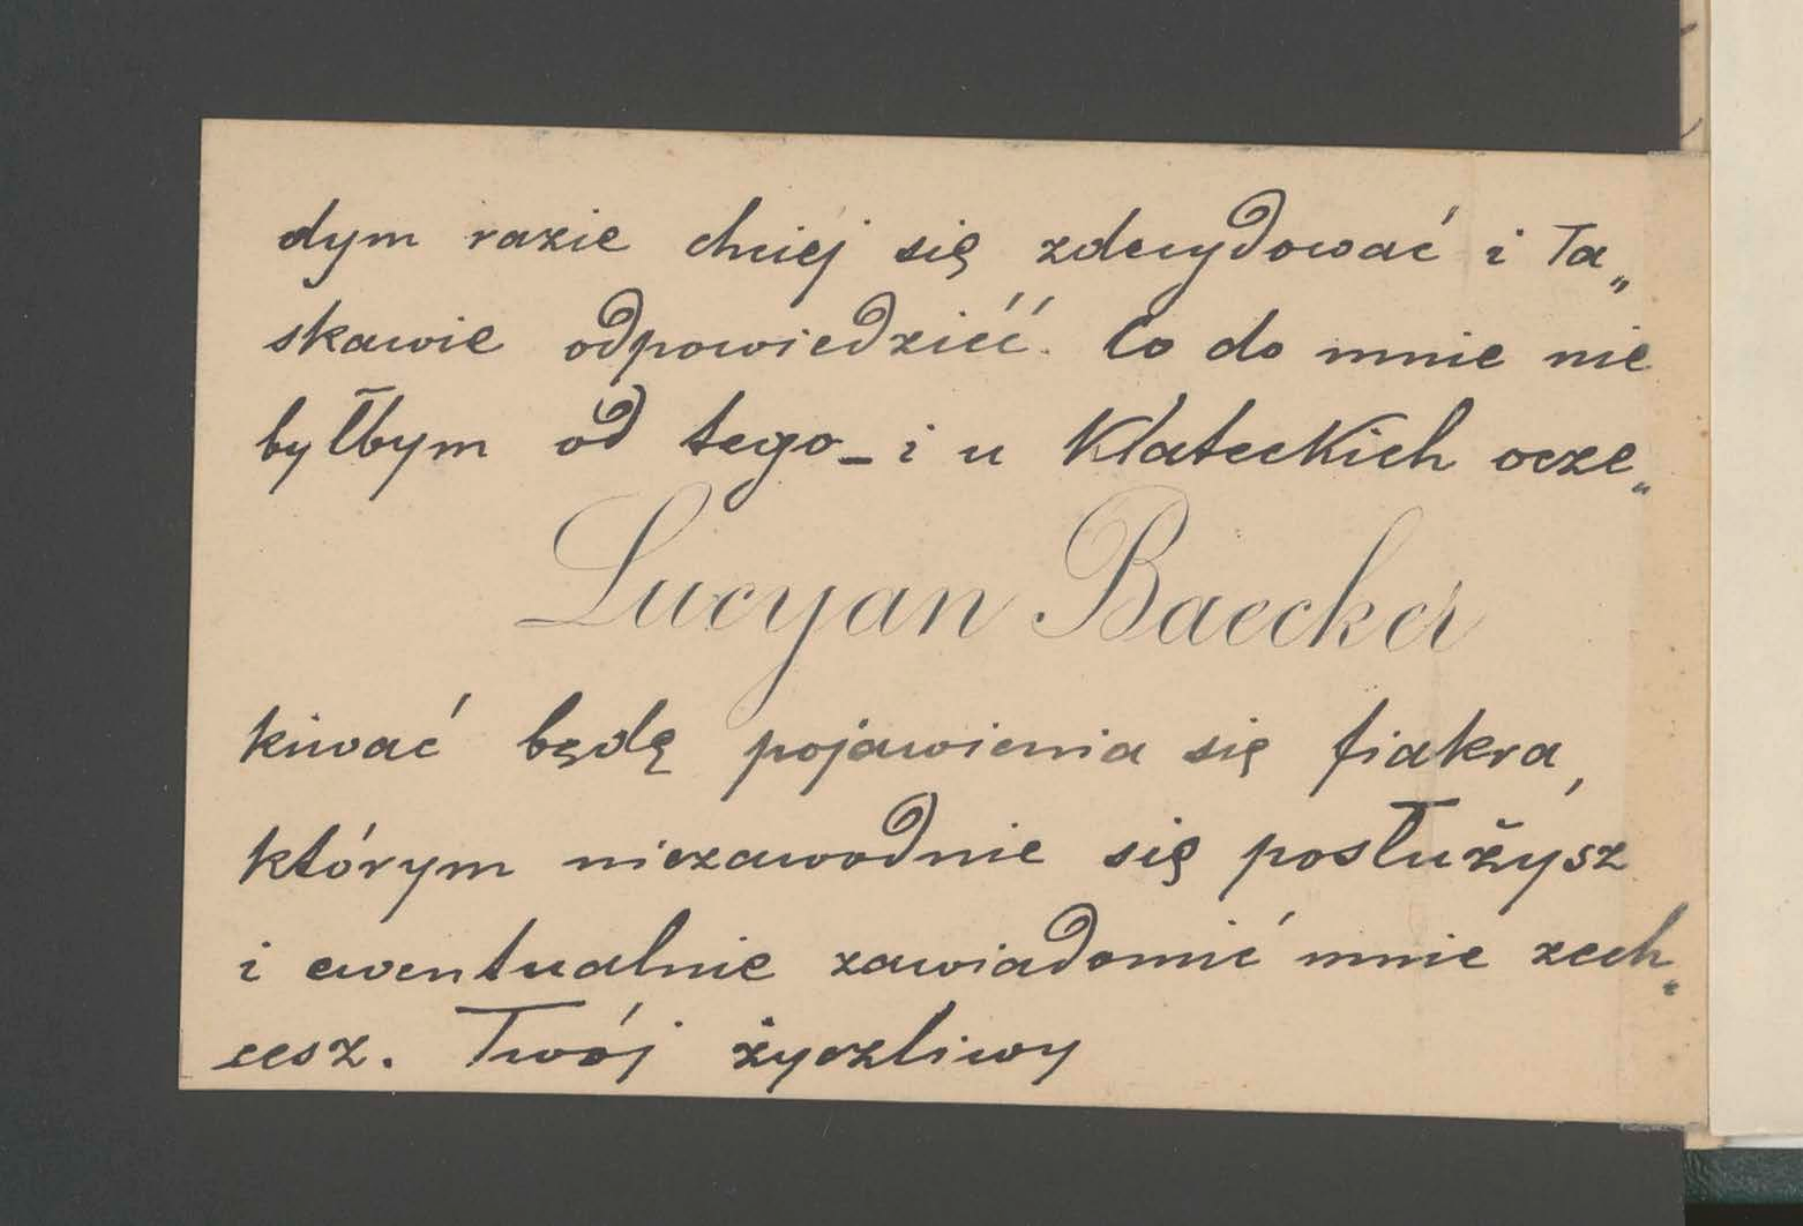 dym razie chciej się zdecydować i ła„
skawie odpowiedzieć. Co do mnie nie
byłbym od tego – i u Kłateckich ocze„
Lucyan Baecker
kiwać będę pojawienia się fiakra,
którym niezawodnie się posłużysz
i ewentualnie zawiadomić mnie zech„
cesz. Twój życzliwy